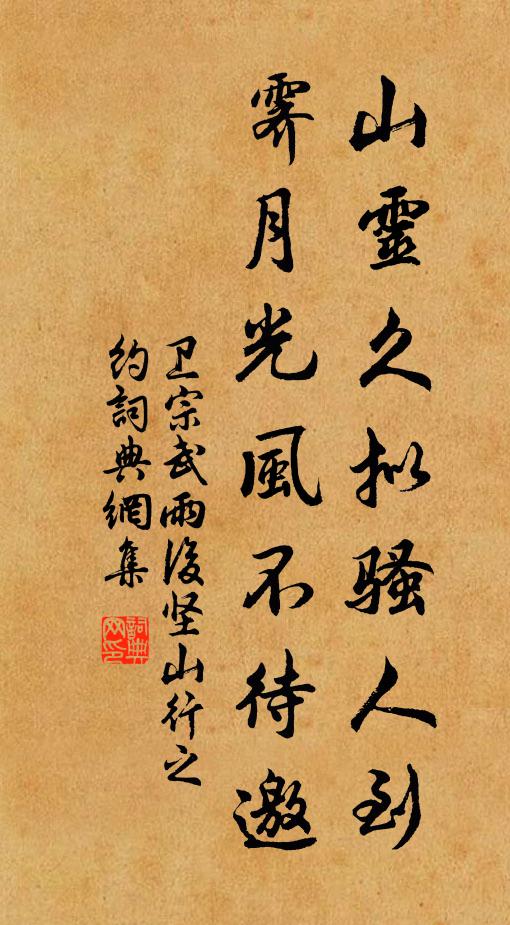 山靈久拟骚人到
霽月光風不待邀
卫宗武雨後坚山行之
约詞典網集
詞典
网印